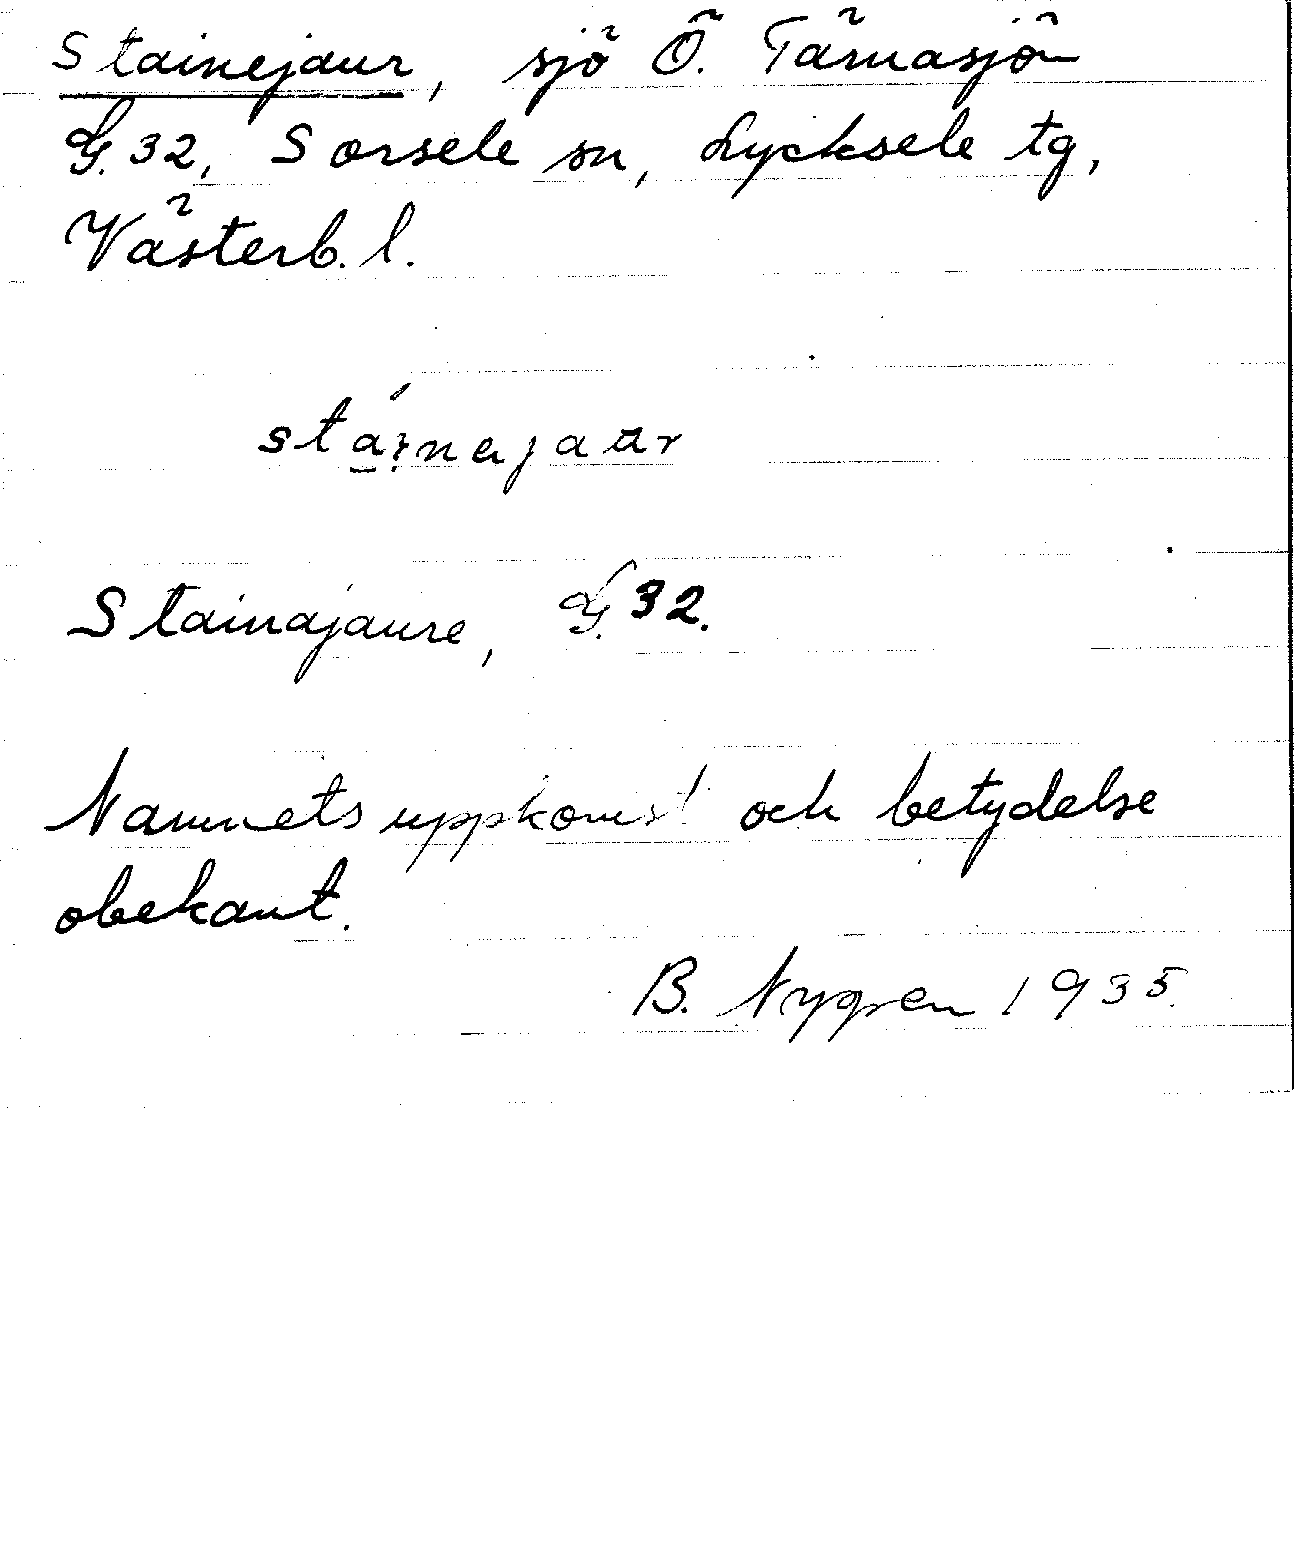 Stainejaur, sjö Ö. Tärnasjön
G. 32, Sorsele sn, Lycksele tg,
Västerb. l.
stáinajaur
Stainajaure, G. 32.
Namnets uppkomst och betydelse
obekant.
B. Nygren 1935.